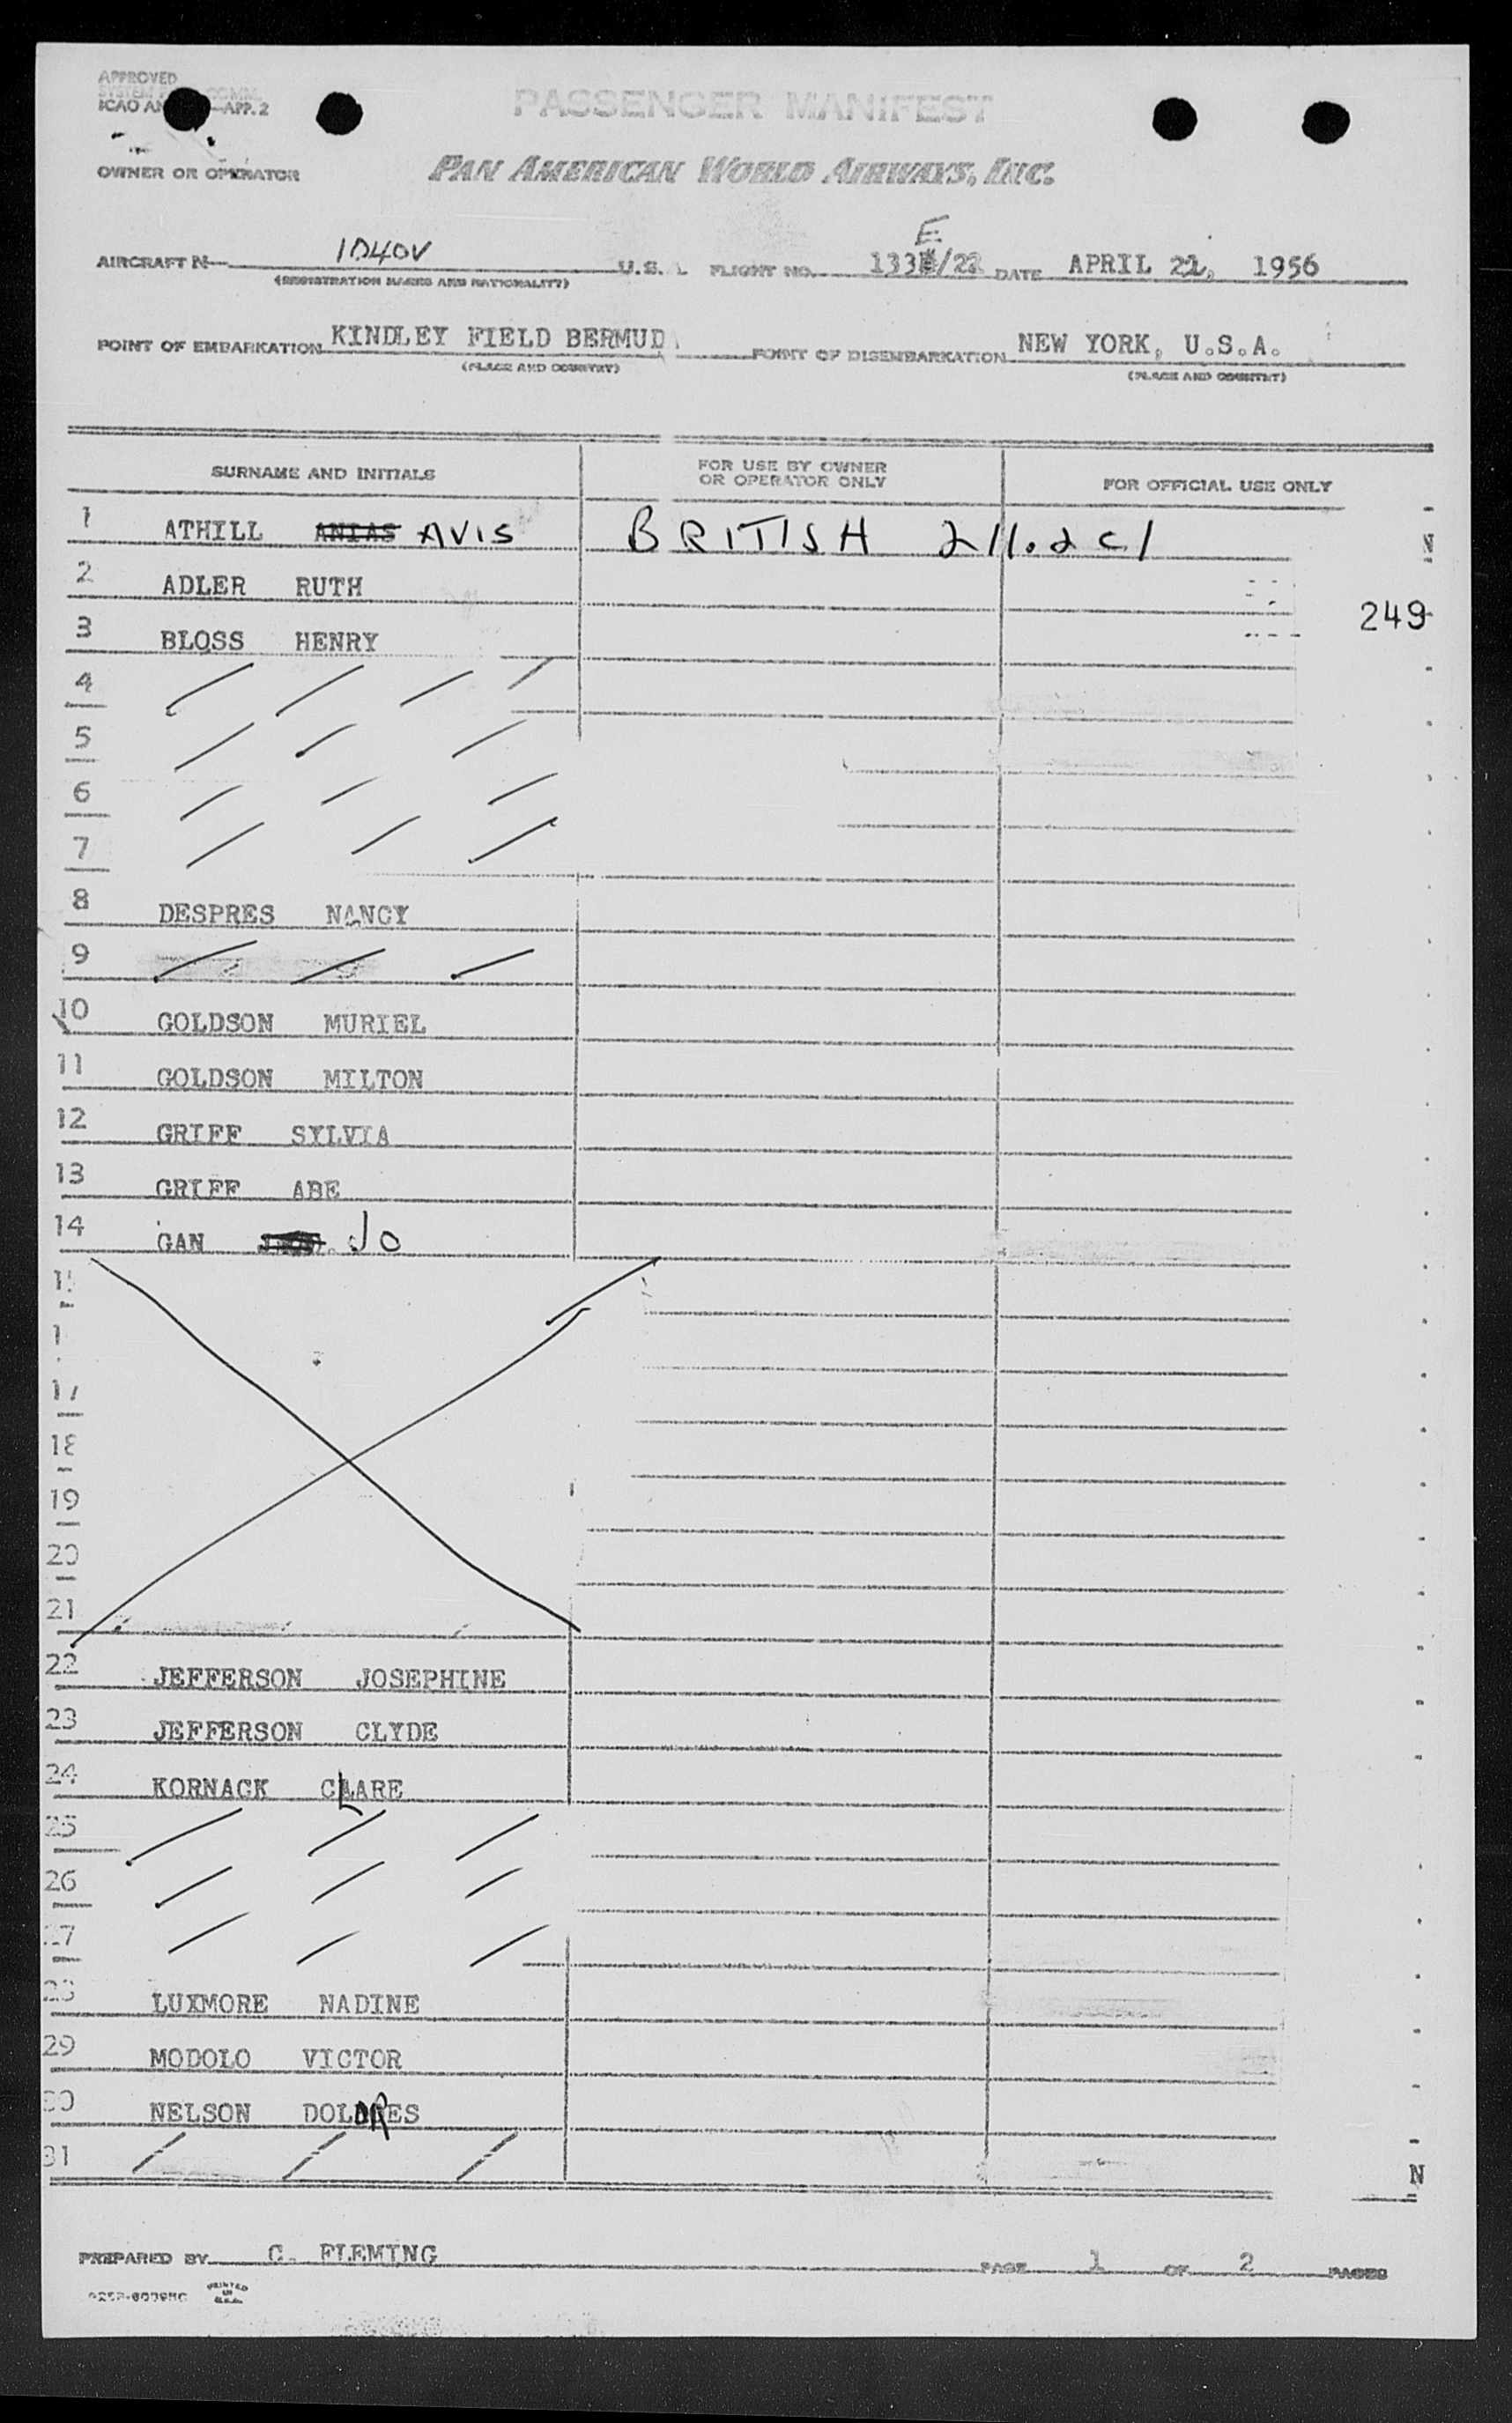 APPROVED
ICAO AN -APP. 2
PASSENGER MANIFEST
OWNER OR OPERATOR
PAN AMERICAN WORLD AIRWAYS, INC.
E
AIRCRAFT N 1040V U.S. FLIGHT NO. 133 /22 DATE APRIL 21, 1956
(REGISTRATION MARKS AND NATIONALITY)
POINT OF EMBARKATION KINDLEY FIELD BERMUD POINT OF DISEMBARKATION NEW YORK, U.S.A.
(PLACE AND COUNTRY) (PLACE AND COUNTRY)
SURNAME AND INITIALS FOR USE BY OWNER OR OPERATOR ONLY FOR OFFICIAL USE ONLY
1 ATHILL ANIAS AVIS BRITISH 211.2c1 N
2 ADLER RUTH
249
3 BLOSS HENRY
4
5
6
7
8 DESPRES NANCY
9
10 GOLDSON MURIEL
11 GOLDSON MILTON
12 GRIFF SYLVIA
13 GRIFF ABE
14 GAN JO
15
1
17
18
19
20
21
22 JEFFERSON JOSEPHINE
23 JEFFERSON CLYDE
24 KORNACK CLARE
25
26
27
28 LUXMORE NADINE
29 MODOLO VICTOR
30 NELSON DOLORES
31
N
PREPARED BY C. FLEMING PAGE 1 OF 2 PAGES
PRINTED IN U.S.A.